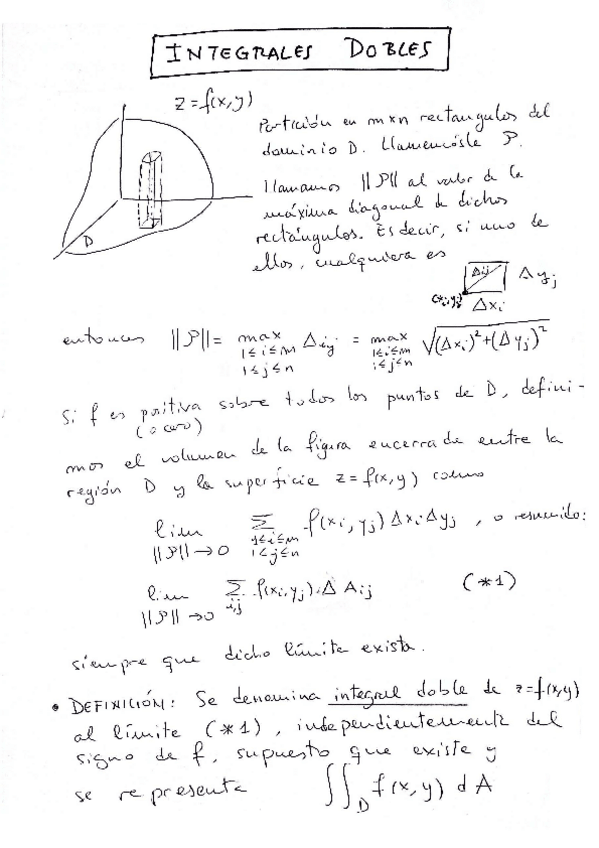 INTEGRALES DOBLES
z = f(x,y)
Partición en m×n rectangulos del
dominio D. Llamemósle P.
llamamos ||P|| al valor de la
máxima diagonal de dichos
rectángulos. Es decir, si uno de
ellos, cualquiera es
D
Δij Δyj
(xi,yj) Δxi
entonces ||P|| = max Δij = max √(Δxi)²+(Δyj)²
1≤i≤m 1≤i≤m
1≤j≤n 1≤j≤n
Si f es positiva sobre todos los puntos de D, defini-
(o cero)
mos el volumen de la figura encerrada entre la
región D y la superficie z = f(x,y) como
lim Σ f(xi,yj) Δxi Δyj , o resumido:
||P||→0 1≤i≤m
1≤j≤n
lim Σ f(xi,yj).Δ Aij (*1)
||P||→0 i,j
siempre que dicho límite exista.
• DEFINICIÓN: Se denomina integral doble de z=f(x,y)
al límite (*1), independientemente del
signo de f, supuesto que existe y
se representa ∬D f(x,y) dA